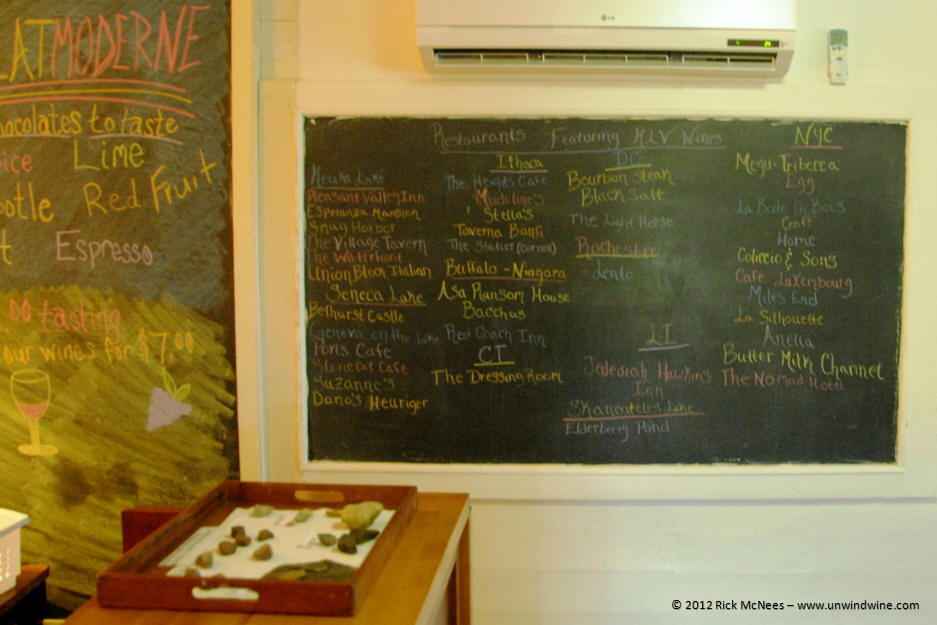 LATMODERNE
hocolates to taste
ice Lime
otle Red Fruit
t Espresso
.00 tasting
our wines for $7.00
LG
Restaurants Featuring KLV Wines
Keuka Lake
Pleasant Valley Inn
Esperanza Mansion
Snug Harbor
The Village Tavern
The Waterfront
Union Block Italian
Seneca Lake
Belhurst Castle
Geneva on the Lake
Ports Cafe
Stonecat Cafe
Suzanne's
Dano's Heuriger
Ithaca
The Heights Cafe
Madeline's
Stella's
Taverna Banfi
The Statler (Cornell)
Buffalo - Niagara
Asa Ransom House
Bacchus
Red Coach Inn
CT
The Dressing Room
DC
Bourbon Steak
Black Salt
The Light Horse
Rochester
Lento
LI
Jedediah Hawkins
Inn
Skaneateles Lake
Elderberry Pond
NYC
Megu-Tribecca
Egg
Craft
Home
Colliccio & Sons
Cafe Luxembourg
Miles End
La Silhouette
Anella
Butter Milk Channel
The Nomad Hotel
© 2012 Rick McNees – www.unwindwine.com